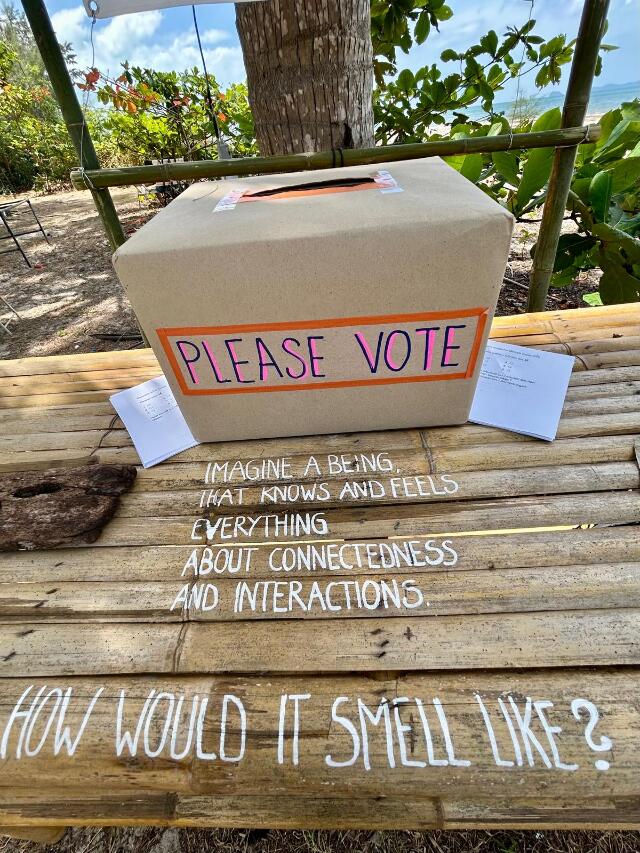 PLEASE VOTE
IMAGINE A BEING,
THAT KNOWS AND FEELS
EVERYTHING
ABOUT CONNECTEDNESS
AND INTERACTIONS.
HOW WOULD IT SMELL LIKE?